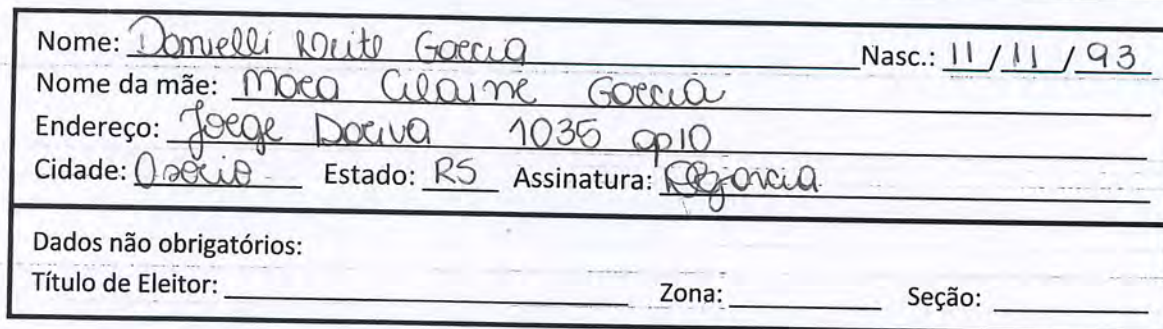 Nome: Danielli Brito Garcia Nasc.: 11/11/93
Nome da mãe: Mara Cilaine Garcia
Endereço: Jorge Dariva 1035 ap10
Cidade: Osório Estado: RS Assinatura:
Dados não obrigatórios:
Título de Eleitor: Zona: Seção: